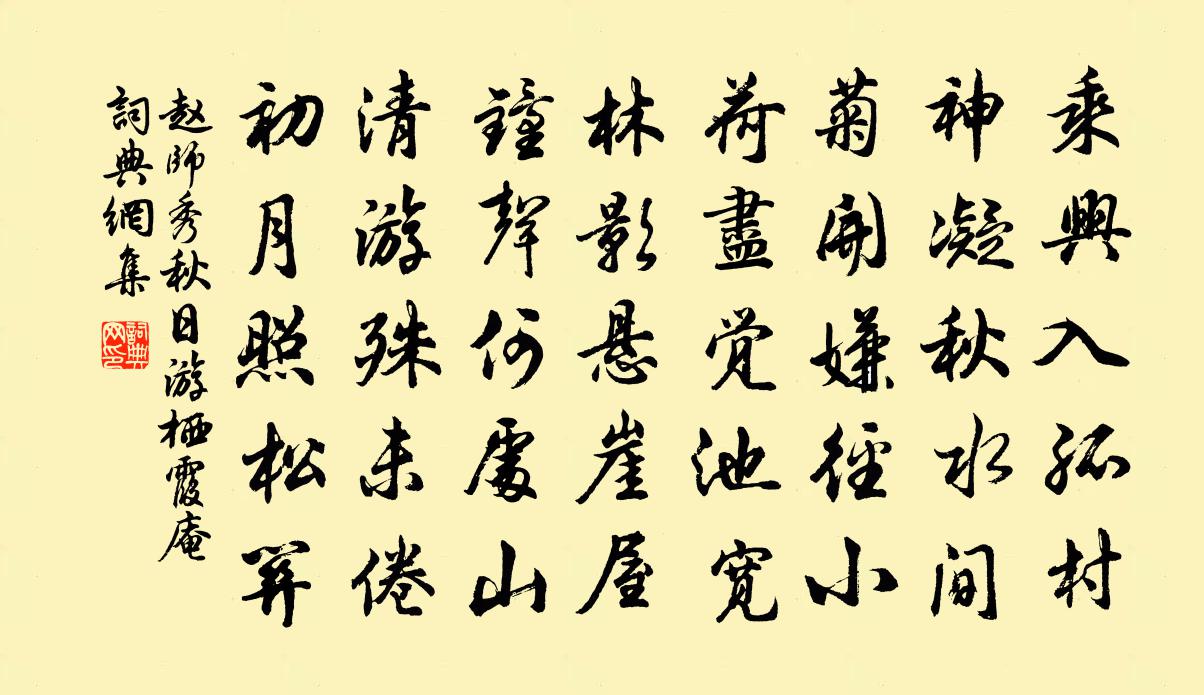 乘興入孤村
神凝秋水间
菊開嫌徑小
荷盡觉池寬
林影悬崖屋
鐘聲何處山
清游殊未倦
初月照松關
赵師秀秋日游栖霞庵
詞典網集
詞典网印